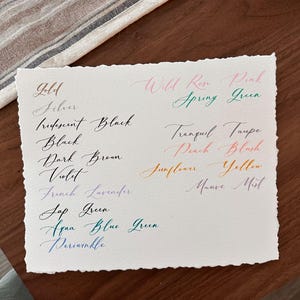 Gold
Silver
Iridescent Black
Black
Dark Brown
Violet
French Lavender
Sap Green
Aqua Blue Green
Periwinkle
Wild Rose Pink
Spring Green
Tranquil Taupe
Peach Blush
Sunflower Yellow
Mauve Mist